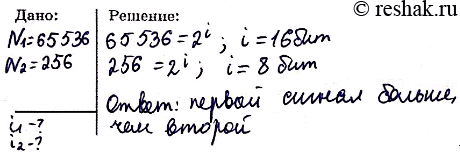 © reshak.ru
Дано:
N₁=65536
N₂=256
i₁-?
i₂-?
Решение:
65536=2ⁱ; i=16бит
256 =2ⁱ; i= 8 бит
Ответ: первый сигнал больше,
чем второй